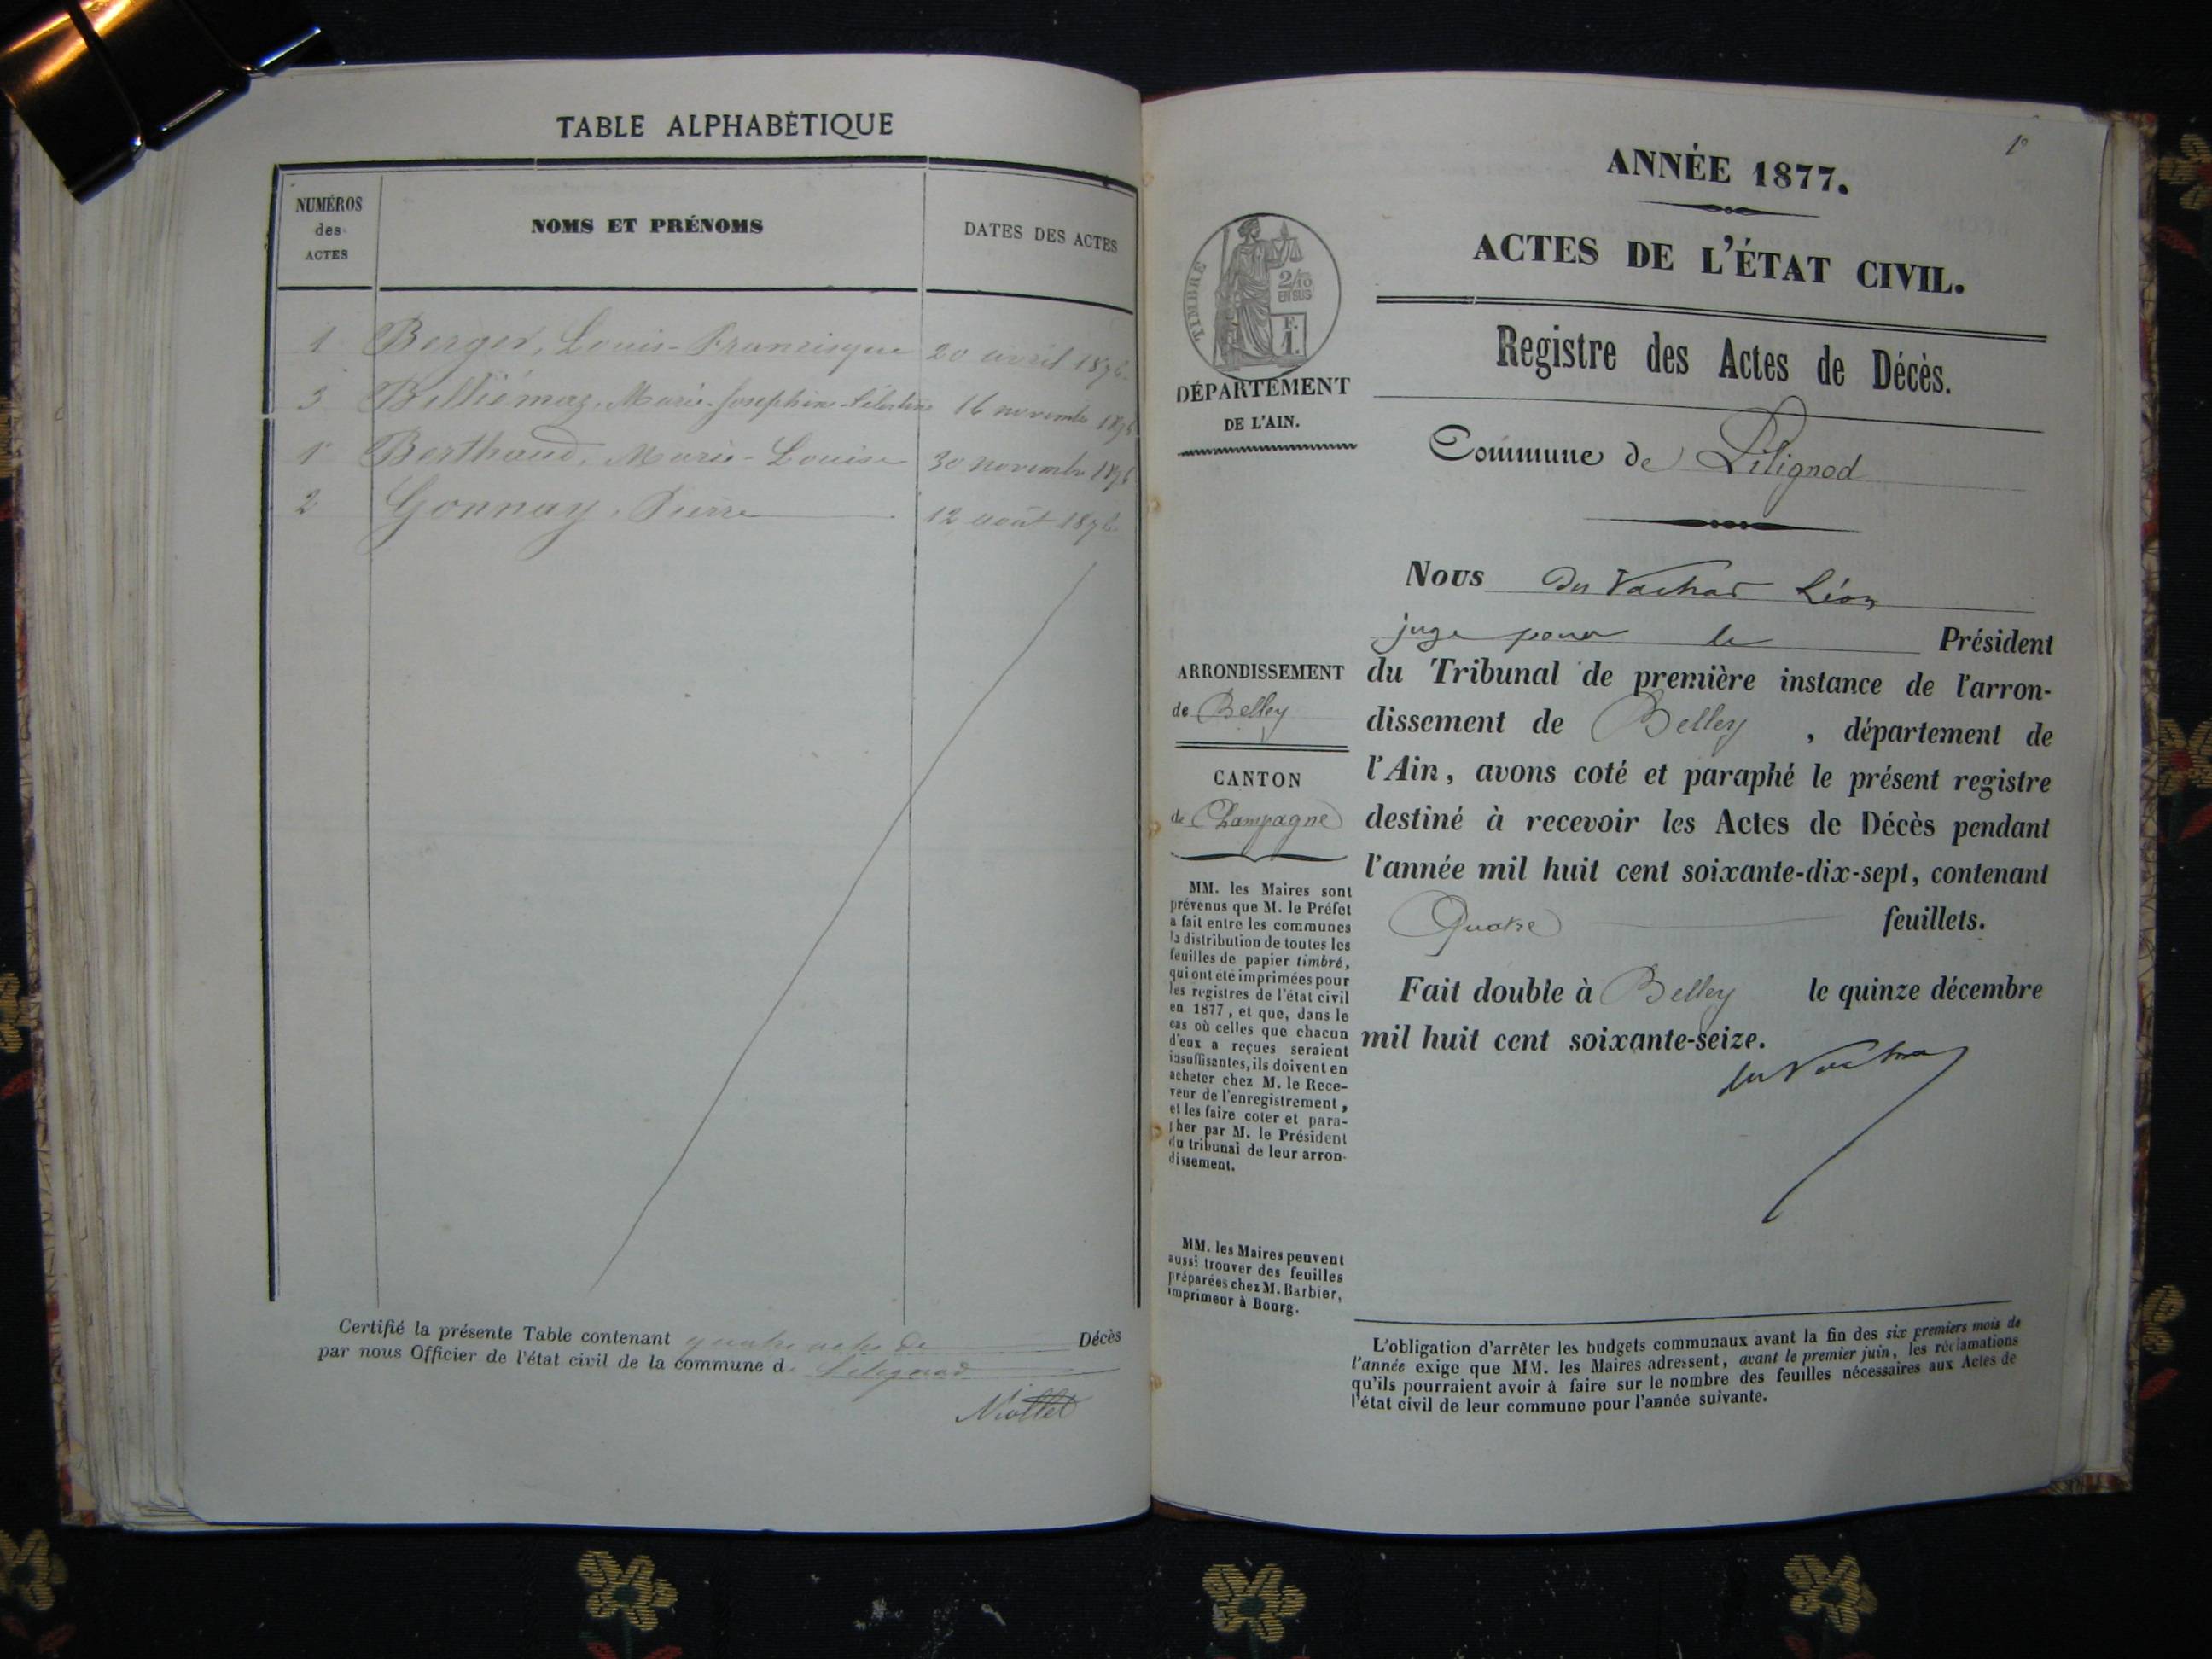 TABLE ALPHABÉTIQUE
NUMÉROS
des
ACTES
NOMS ET PRÉNOMS
DATES DES ACTES
1 Berger, Louis-Francisque 20 avril 1876.
3 Billiémaz, Marie-Joséphine-Célestine 16 novembre 1876
Berthaud, Marie-Louise 30 novembre 1876
2 Gonnay, Pierre 12 août 1876
Certifié la présente Table contenant quatre actes de Décès
par nous Officier de l'état civil de la commune d. Lilignod
Niollet
1º
ANNÉE 1877.
ACTES DE L'ÉTAT CIVIL.
TIMBRE
2/10
EN SUS
F.
1.
DÉPARTEMENT
DE L'AIN.
Registre des Actes de Décès.
Commune de Lilignod
Nous du Vachat Léon
juge pour le Président
du Tribunal de première instance de l'arron-
dissement de Belley, département de
l'Ain, avons coté et paraphé le présent registre
destiné à recevoir les Actes de Décès pendant
l'année mil huit cent soixante-dix-sept, contenant
Quatre feuillets.
Fait double à Belley le quinze décembre
mil huit cent soixante-seize.
du Vachat
ARRONDISSEMENT
de Belley
CANTON
de Champagne
MM. les Maires sont
prévenus que M. le Préfet
a fait entre les communes
la distribution de toutes les
feuilles de papier timbré,
qui ont été imprimées pour
les registres de l'état civil
en 1877, et que, dans le
cas où celles que chacun
d'eux a reçues seraient
insuffisantes, ils doivent en
acheter chez M. le Rece-
veur de l'enregistrement,
et les faire coter et para-
pher par M. le Président
du tribunal de leur arron-
dissement.
MM. les Maires peuvent
aussi trouver des feuilles
préparées chez M. Barbier,
imprimeur à Bourg.
L'obligation d'arrêter les budgets communaux avant la fin des six premiers mois de
l'année exige que MM. les Maires adressent, avant le premier juin, les réclamations
qu'ils pourraient avoir à faire sur le nombre des feuilles nécessaires aux Actes de
l'état civil de leur commune pour l'année suivante.